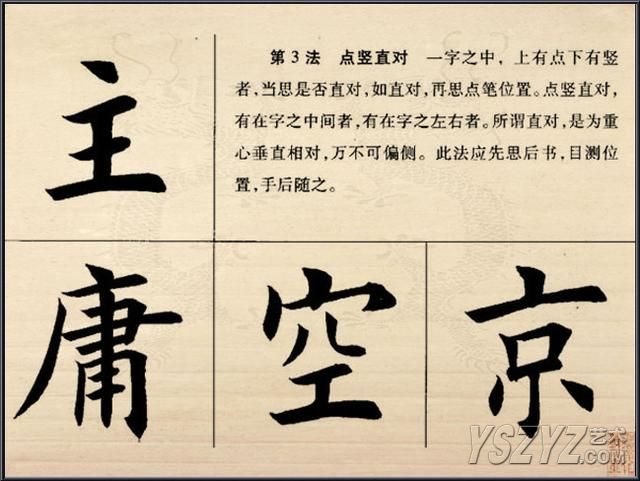 第3法 点竖直对 一字之中，上有点下有竖
者，当思是否直对，如直对，再思点笔位置。点竖直对，
有在字之中间者，有在字之左右者。所谓直对，是为重
心垂直相对，万不可偏侧。此法应先思后书，目测位
置，手后随之。
主
庸 空 京
YSZYZ艺术
.COM